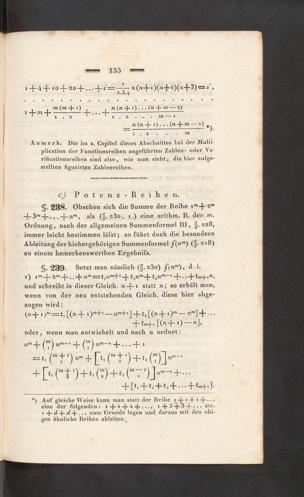 — 135 —
1+4+10+20+...+i = 1/1.2.3.4 n(n+1)(n+2)(n+3) = i,
1+m+ m(m+1)/1.2 +...+ n(n+1)...(n+m−2)/1.2...m−1
= n(n+1)...(n+m−1)/1.2...m *).
Anmerk. Die im 2. Capitel dieses Abschnittes bei der Multi-
plication der Functionsreihen angeführten Zahlen- oder Ve-
rificationsreihen sind also, wie man sieht, die hier aufge-
stellten figurirten Zahlenreihen.
c) Potenz-Reihen.
§. 238. Obschon sich die Summe der Reihe 1^m+2^m
+3^m+...+n^m, als (§. 230, 1.) eine arithm. R. der m.
Ordnung, nach der allgemeinen Summenformel III, §. 228,
immer leicht bestimmen läßt; so führt doch die besondere
Ableitung der hiehergehörigen Summenformel ∫(n^m) (§. 218)
zu einem bemerkenswerthen Ergebniß.
§. 239. Setzt man nämlich (§. 230) ∫(n^m), d. i.
1) 1^m+2^m+..+n^m=t₁n^(m+1)+t₂n^m+t₃n^(m−1)+..+t_(m+1)n,
und schreibt in dieser Gleich. n+1 statt n; so erhält man,
wenn von der neu entstehenden Gleich. diese hier abge-
zogen wird:
(n+1)^m=t₁[(n+1)^(m+1)−n^(m+1)]+t₂[(n+1)^m−n^m]+...
+t_(m+1)[(n+1)−n],
oder, wenn man entwickelt und nach n ordnet:
n^m+(m/1)n^(m−1)+(m/2)n^(m−2)+...+1
=t₁(m+1/1)n^m+[t₁(m+1/2)+t₂(m/1)]n^(m−1)
+[t₁(m+1/3)+t₂(m/2)+t₃(m−1/1)]n^(m−2)+...
+[t₁+t₂+t₃+...+t_(m+1)].
*) Auf gleiche Weise kann man statt der Reihe 1+1+1+...
eine der folgenden: 1+2+2+..., 1+3+3+... etc.
1+d+d+... zum Grunde legen und daraus mit den obi-
gen ähnliche Reihen ableiten.